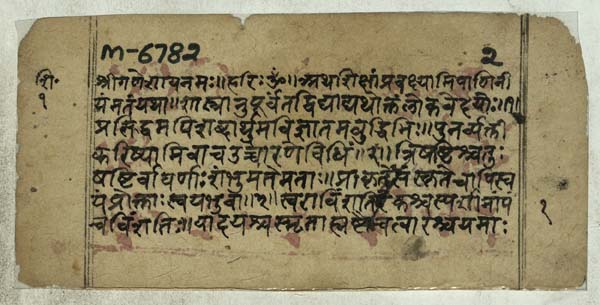 M-6782 2
शि.
१
श्रीगणेशायनमः॥हरिःॐ॥अथशिक्षांप्रवक्ष्यामिपाणिनी
यंमतंयथा॥शास्त्रानुपूर्वंतद्विद्याद्यथोक्तंलोकवेदयोः॥१॥
प्रसिद्धमपिशब्दार्थमविज्ञातमबुद्धिभिः॥पुनर्व्यक्ती
करिष्यामिवाचउच्चारणेविधिं॥२॥त्रिषष्टिश्चतुः
षष्टिर्वावर्णाःशंभुमतेमताः॥प्राकृतेसंस्कृतेचापिस्व
यंप्रोक्ताःस्वयंभुवा॥३॥स्वराविंशतिरेकश्चस्पर्शानांपं
चविंशतिः॥यादयश्चस्मृताह्यष्टौचत्वारश्चयमाः
१